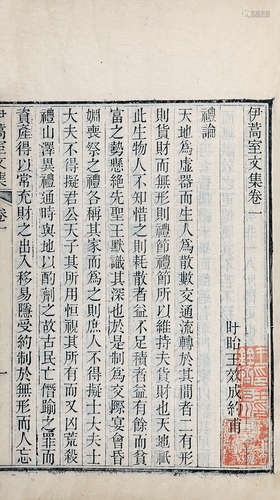 伊蒿室文集卷一
盱眙王效成約甫
禮論
天地為虛器而生人為散數交通流轉於其間者二有形
則貨財而無形則禮節禮節所以維持夫貨財也天地祗
此生物人不知惜之則耗散者益不足積者益有餘而貧
富之勢懸絶先聖王默識其深也於是制為交際宴會昏
婣喪祭之禮各稱其家而為之則庶人不得擬士大夫士
大夫不得擬君公天子其所用恒視其所有而又凶荒殺
禮山澤異禮通時與地以酌劑之故古民亡僭踰之罪而
資產得以常充財之出入移易隱受約制於無形而人忘
伊蒿室文集
卷一
一